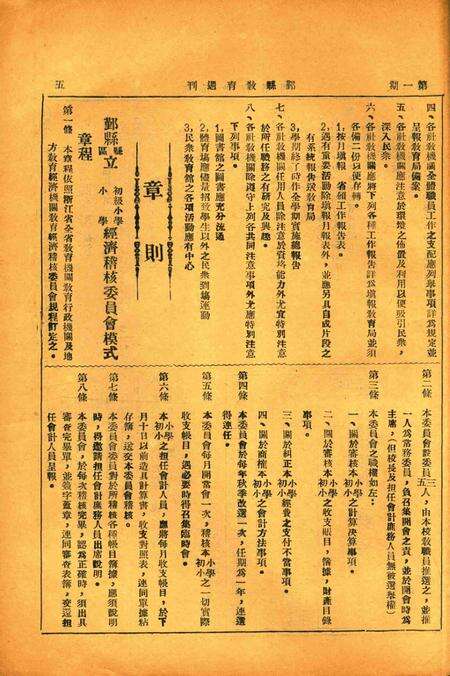 第一期
鄞縣敎育週刊
五
四、各社敎機關全體職員工作之支配應列舉事項詳爲規定並
呈報敎育局備案。
五、各社敎機關應注意於環境之佈置及利用以便吸引民衆，
深入民衆。
六、各社敎機關應將下列各種工作報告詳爲填報敎育局並須
各備二份以便存轉。
1,按月填報　省頒工作報告表。
2,遇有重要活動除填報月報表外，並應另具自成片段之
有系統報告送敎育局
3,學期終了時作全學期實施總報告
七、各社敎機關任用人員除注意於資格能力外尤宜特別注意
於所任職務之有研究及興趣。
八、各社敎機關除遵守上列各共同注意事項外尤應特別注意
下列事項。
1,圖書館之圖書應充分流通
2,體育塲應儘量招致學生以外之民衆到塲運動
3,民衆敎育館之各項活動應有中心
章則
鄞縣縣區立初級小學小學經濟稽核委員會模式
章程
第一條　本章程依照浙江省全省敎育機關敎育行政機關及地
方敎育經濟機關敎育經濟稽核委員會規程訂定之。
第二條　本委員會設委員三五人，由本校敎職員推選之，並推
一人爲常務委員，負召集開會之責，並於開會時爲
主席，（但校長及担任會計庶務人員無被選舉權）
第三條　本委員會之職權如左：
一、關於審核本小學初小之計算決算事項。
二、關於審核本小學初小之收支賬目，簿據，財產目錄
事項。
三、關於糾正本小學初小經費之支付不當事項。
四、關於商榷本小學初小之會計方法事項。
第四條　本委員會於每年秋季改選一次，任期爲一年，連選
得連任。
第五條　本委員會每月開常會一次，稽核本小學初小之一切實際
收支賬目，遇必要時得召集臨時會。
第六條　本小學初小之担任會計人員，應將每月收支賬目，於下
月十日以前造具計算書，收支對照表，連同單據粘
存簿，送交本委員會稽核。
第七條　本委員會委員對於所稽核各種賬目簿據，應須說明
時，得邀請担任會計庶務人員出席說明。
第八條　本委員會，於每次稽核完畢，認爲正確時，須出具
審查完畢單，並簽字蓋章，連同審查表簿，交還担
任會計人員呈報。